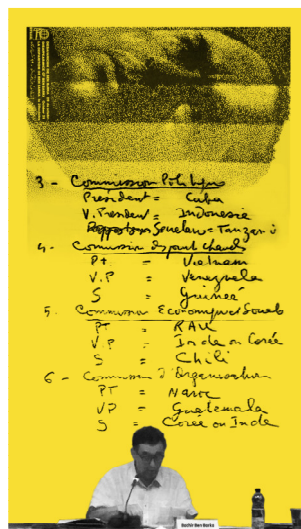 3 - Commission Politique
President = Cuba
V. President = Indonésie
Rapporteur Secretaire = Tanzanie
4 - Commission des points chauds
Pt = Vietnam
V.P = Venezuela
S = Guinée
5. Commission Economique Sociale
PT = RAU
V.P = Inde ou Corée
S = Chili
6 - Commission d'Organisation
PT = Maroc
VP = Guatemala
S = Corée ou Inde
Bachir Ben Barka